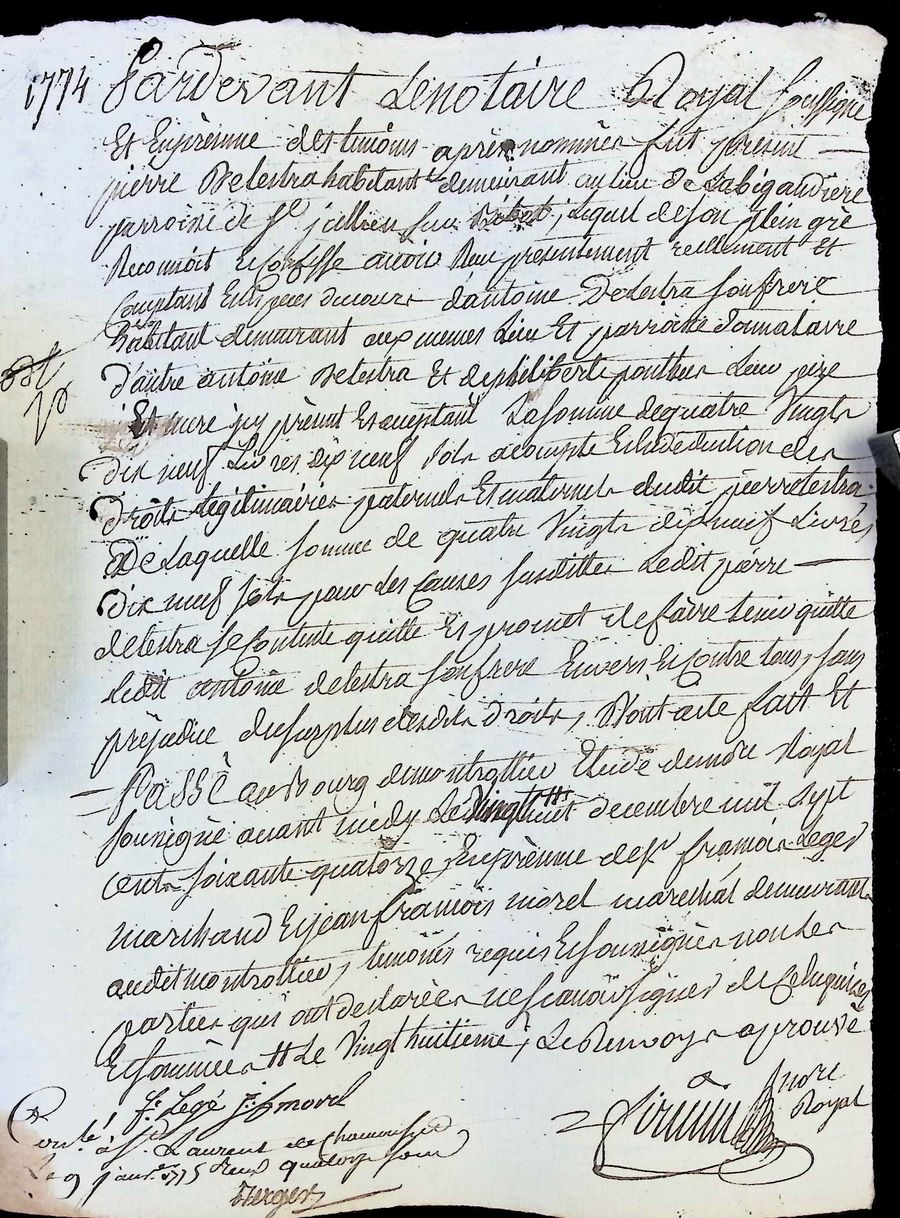 1774 Pardevant Le notaire Royal soussigné
Et En prèsence des temoins après nommès fut present
pierre Delestra habitant et demeurant au lieu de Labigaudiere
parroisse de St jullien sur Bibost, Lequel de son plein gré
Reconnoit et Confesse avoir Reçu presentement reellement Et
Comptant En Especes du cours d'antoine Delestra son frere
habitant demeurant aux memes Lieu Et parroisse donnataire
d'autre antoine Delestra Et de philiberte ponthus Leur pere
Et mere icy prèsent Et acceptant La somme de quatre Vingts
Dix neuf Livres dix neuf sols a compte Et en deduction des
Droits legitimaires paternels Et maternels dudit pierre Delestra
De Laquelle somme de quatre Vingts dix neuf Livres
Dix neuf sols pour Les Causes susdittes Ledit pierre
delestra se Contente quitte Et promet de faire tenir quitte
ledit antoine delestra son frere Envers Et Contre tous, sans
préjudice du surplus desdits Droits, Dont acte fait Et
Passé au Bourg de montrottier Etude dudit no.re Royal
soussigné avant midy Le Vingt huit decembre mil sept
Cents soixante quatorze, En prèsence de sr françois Leger
marchand Et jean françois morel marechal demeurants
audit montrottier, temoins requis Et soussignés non les
parties qui ont declarées ne sçavoir signer de Ce Enquises
Et sommèes // Le Vingt huitieme, Le Renvoys aprouvé
fs Legé j: f: morel
firmin no.re Royal
Conté à St Laurent de Chamousset
Le 9 janv.er 1775 Reçu quatorze sous
Berger